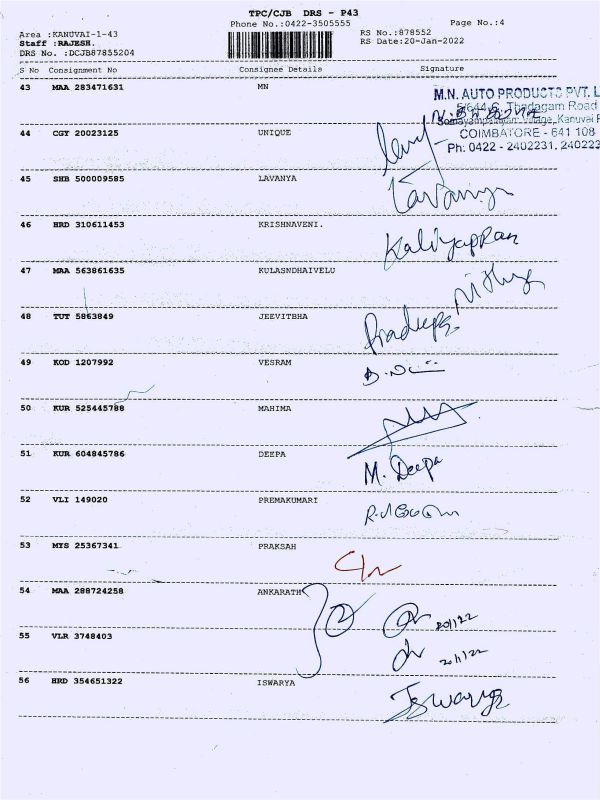 TPC/CJB DRS - P43
Phone No.:0422-3505555
Page No.:4
Area :KANUVAI-1-43
RS No.:878552
Staff :RAJESH.
RS Date:20-Jan-2022
DRS No. :DCJB87855204
S No Consignment No Consignee Details Signature
43 MAA 283471631 MN
M.N. AUTO PRODUCTS PVT. L
5/644-C, Thadagam Road
Somayampalayam Village, Kanuvai P
COIMBATORE - 641 108
Ph: 0422 - 2402231, 240223
44 CGY 20023125 UNIQUE
45 SHB 500009585 LAVANYA
Lavanya
46 HRD 310611453 KRISHNAVENI.
Kaliyappan
47 MAA 563861635 KULASNDHAIVELU
Nithya
48 TUT 5863849 JEEVITBHA
Pradeepa
49 KOD 1207992 VESRAM
50 KUR 525445788 MAHIMA
51 KUR 604845786 DEEPA
M. Deepa
52 VLI 149020 PREMAKUMARI
53 MYS 25367341 PRAKSAH
54 MAA 288724258 ANKARATH
2
20/1/22
55 VLR 3748403
20/1/22
56 HRD 354651322 ISWARYA
Iswarya